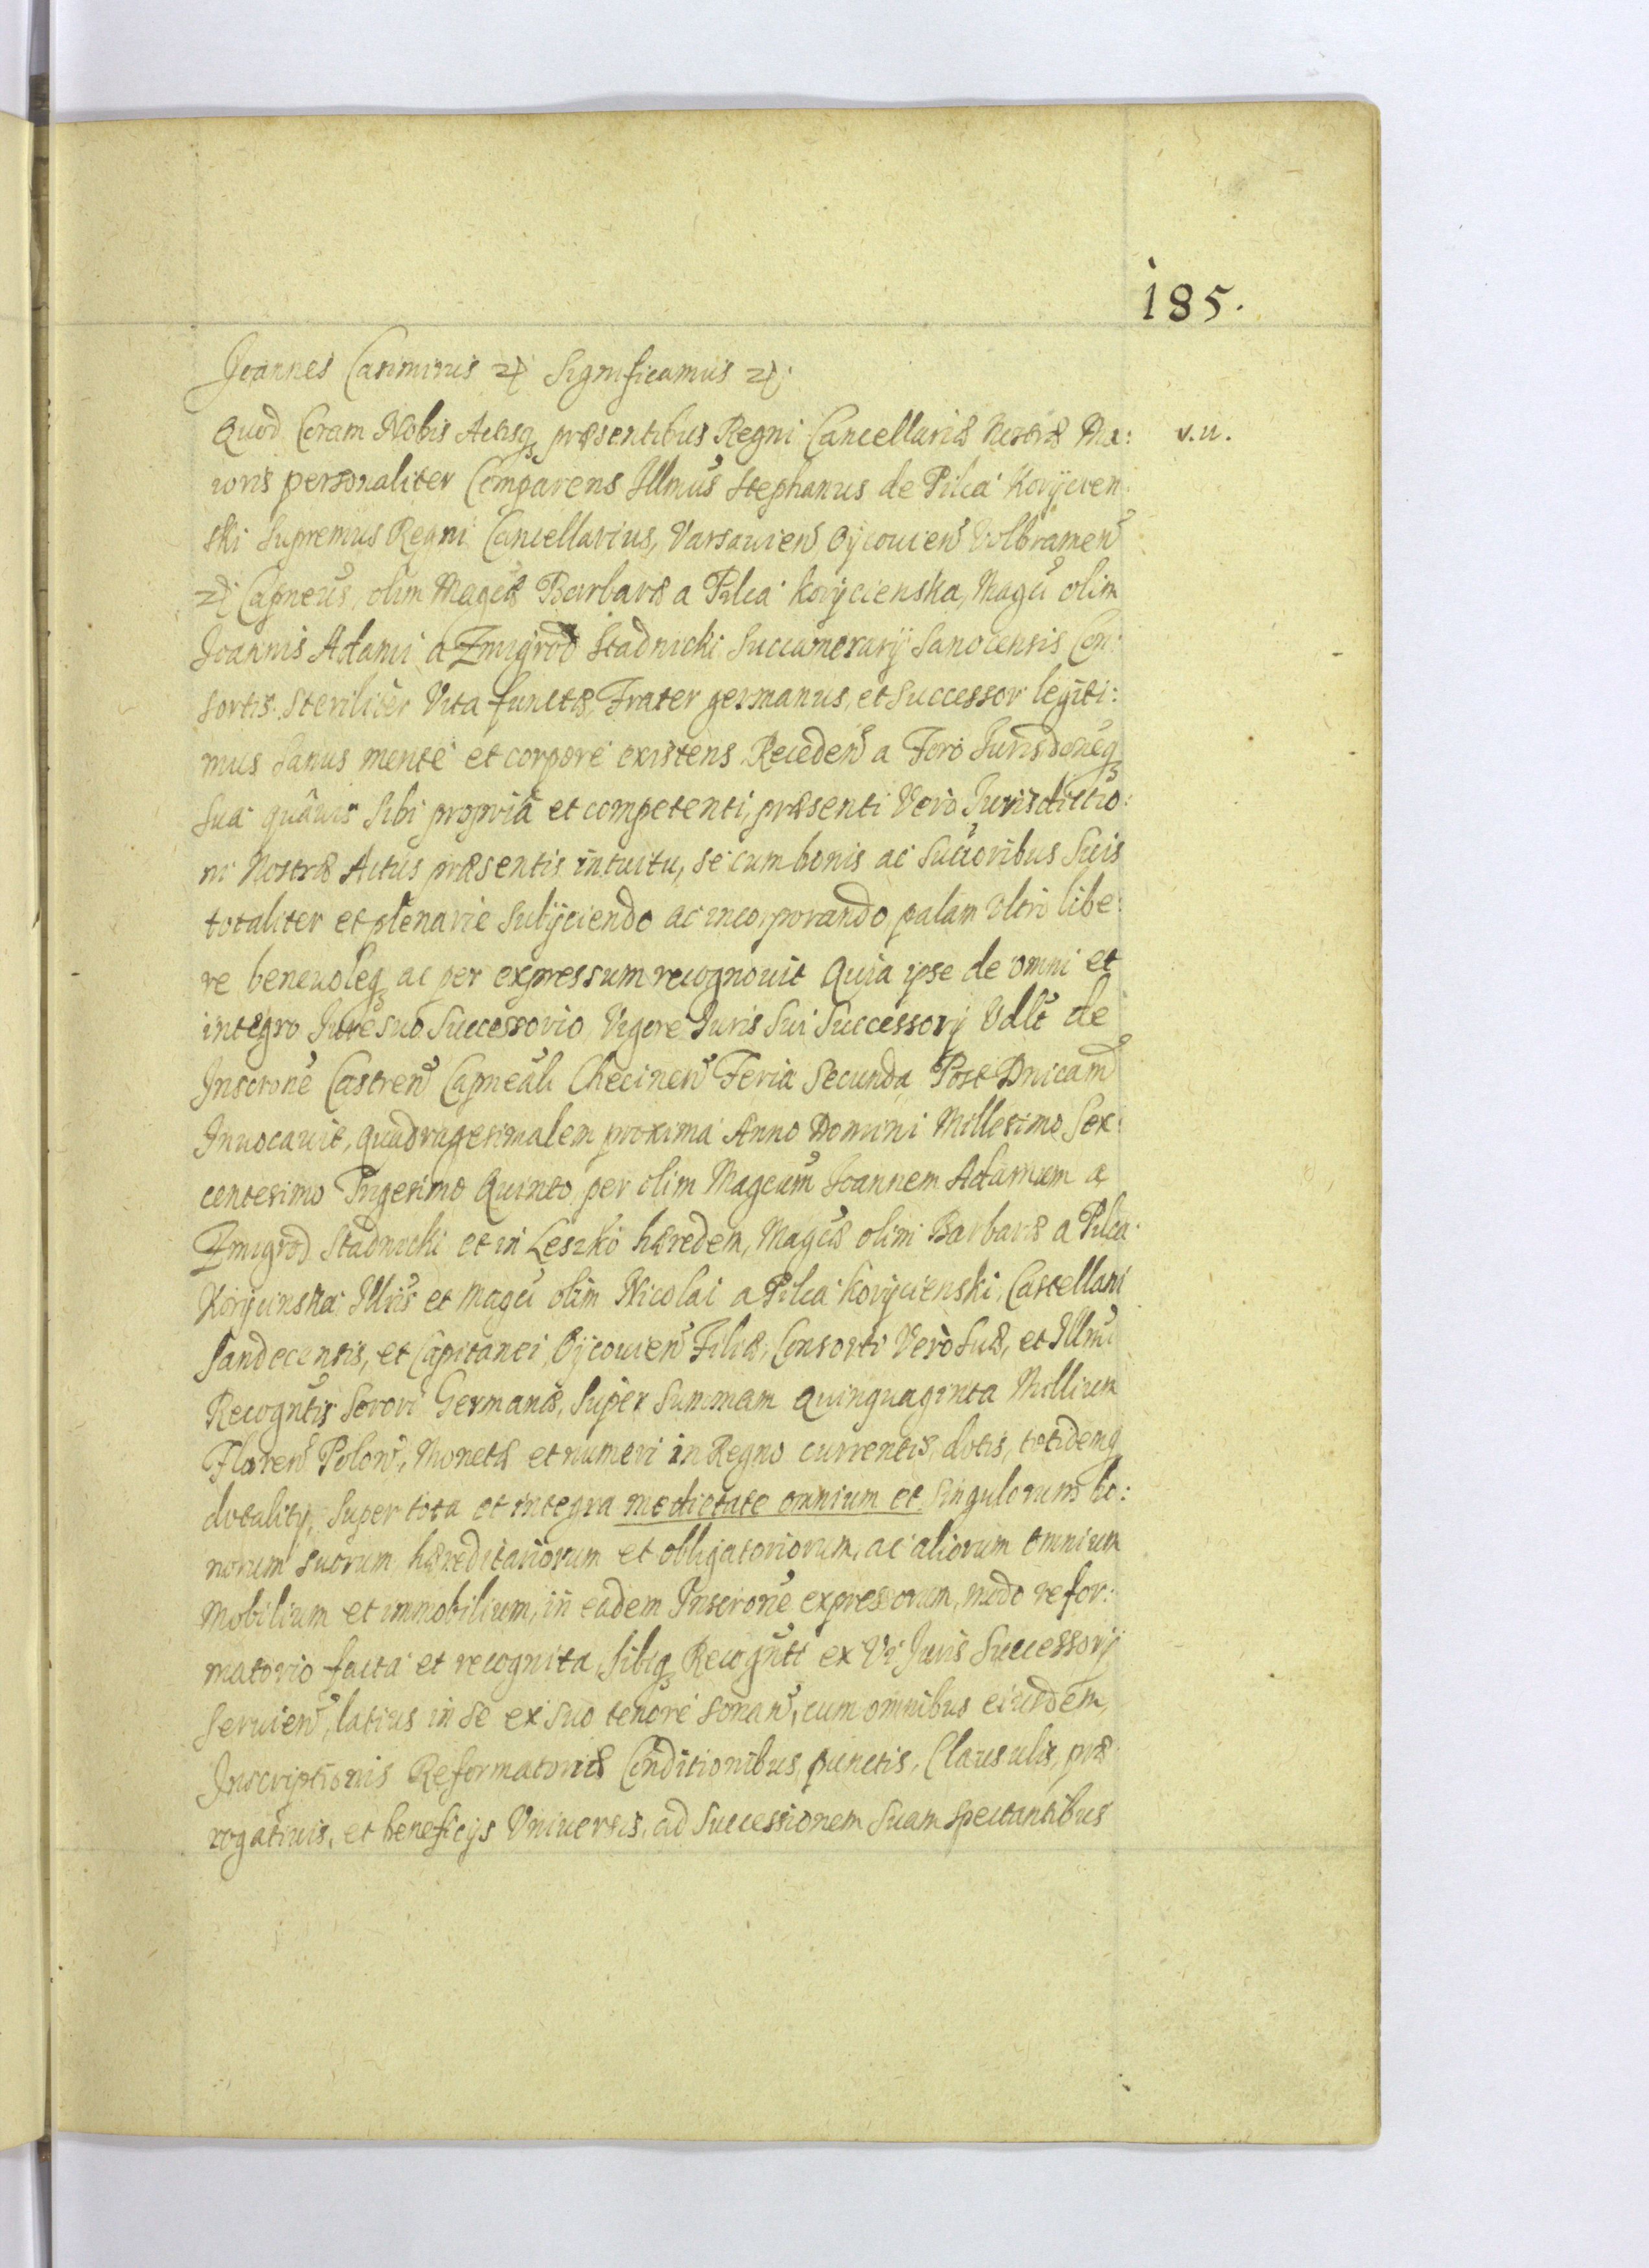 185.
Joannes Casimirus etc Significamus etc
Quod Coram Nobis Actisq præsentibus Regni Cancellariæ Nostræ Ma: v. u.
ioris personaliter Comparens Illmus Stephanus de Pilca Korycien
ski Supremus Regni Cancellarius, Varsavien Oÿcovien Volbramen
etc Capneus, olim Magcæ Barbaræ a Pilca Korÿcienska, Magci olim
Joannis Adami a Zmigrod Stadnicki Succamerarÿ Sanocensis Con:
sortis Steriliter Vita functæ, Frater germanus, et Successor legiti:
mus Sanus mente et corpore existens Receden a Foro Jurisdoneq
sua quâvis Sibi propriâ et competenti, præsenti Verò Jurisdictio:
ni Nostræ Actus præsentis intuitu, se cum bonis ac Succoribus Suis
totaliter et plenarie Subÿciendo ac incorporando palam Ultrò libe:
re benevoleq ac per expressum recognovit Quia ipse de omni et
integro Jure suo Successorio, Vigore Juris Sui Successorÿ Vdlt de
Inscrone Castren Capneali Checinen Feria Secunda Post Dnicam
Invocavit, quadragesimalem proxima Anno Domini Millesimo Sex:
centesimo Trigesimo Quinto per olim Magcum Joannem Adamum a
Zmigrod Stadnicki et in Leszko hæredem, Magcæ olim Barbaræ a Pilca
Korÿcinska Illris et Magci olim Nicolai a Pilca Korÿcienski, Castellani
Sandecensis, et Capitanei Oÿcovien Filiæ, Consorti Verò Suæ, et Illmi
Recogntis Sorori Germanæ, Super Summam Quinquaginta Millium
Floren Polon, Monetæ et numeri in Regno currentis, dotis, totidemq
dotalitÿ, Super tota et integra medietate omnium et Singulorum bo:
norum suorum hæreditariorum et obligatoriorum, ac aliorum omnium
Mobilium et immobilium, in eadem Inscrone expressorum, modo refor:
matorio facta et recognita, Sibiq Recognti ex Vi Juris Successorÿ
Servien, latius in se ex suo tenore sonan, cum omnibus eiusdem,
Inscriptionis Reformatoriæ Conditionibus, punctis, Clausulis, præ
rogativis, et beneficÿs Vniversis, ad Successionem Suam Spectantibus